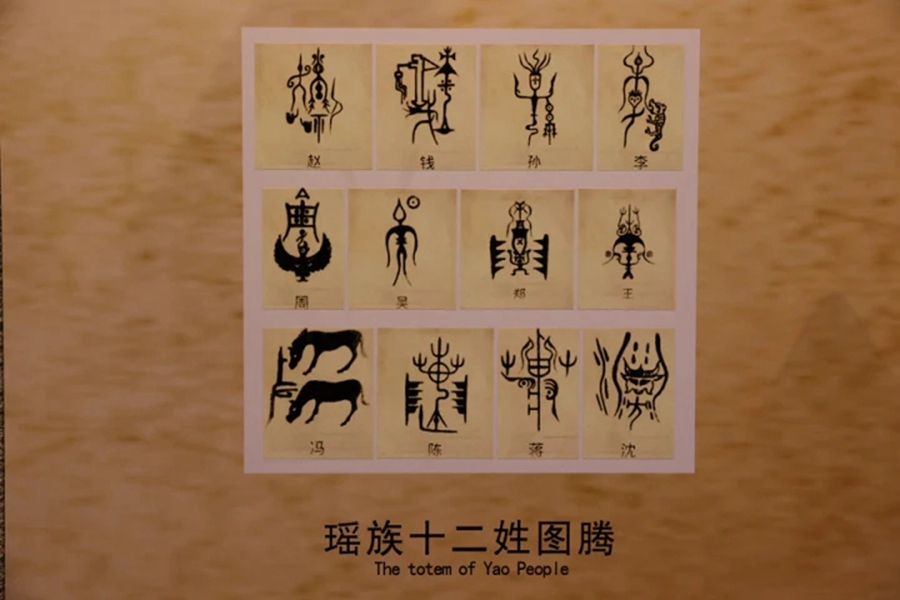 赵 钱 孙 李
周 吴 郑 王
冯 陈 蒋 沈
瑶族十二姓图腾
The totem of Yao People